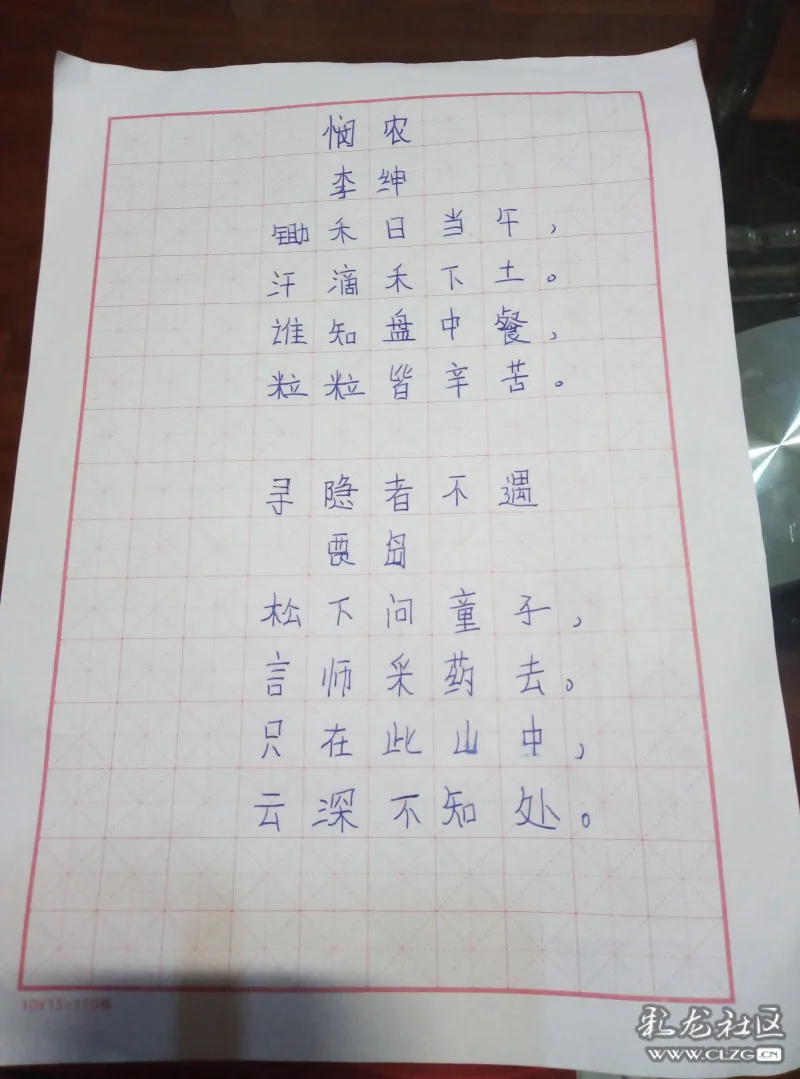 悯农
李绅
锄禾日当午，
汗滴禾下土。
谁知盘中餐，
粒粒皆辛苦。
寻隐者不遇
贾岛
松下问童子，
言师采药去。
只在此山中，
云深不知处。
10×15=150格
彩龙社区
www.CLZG.CN